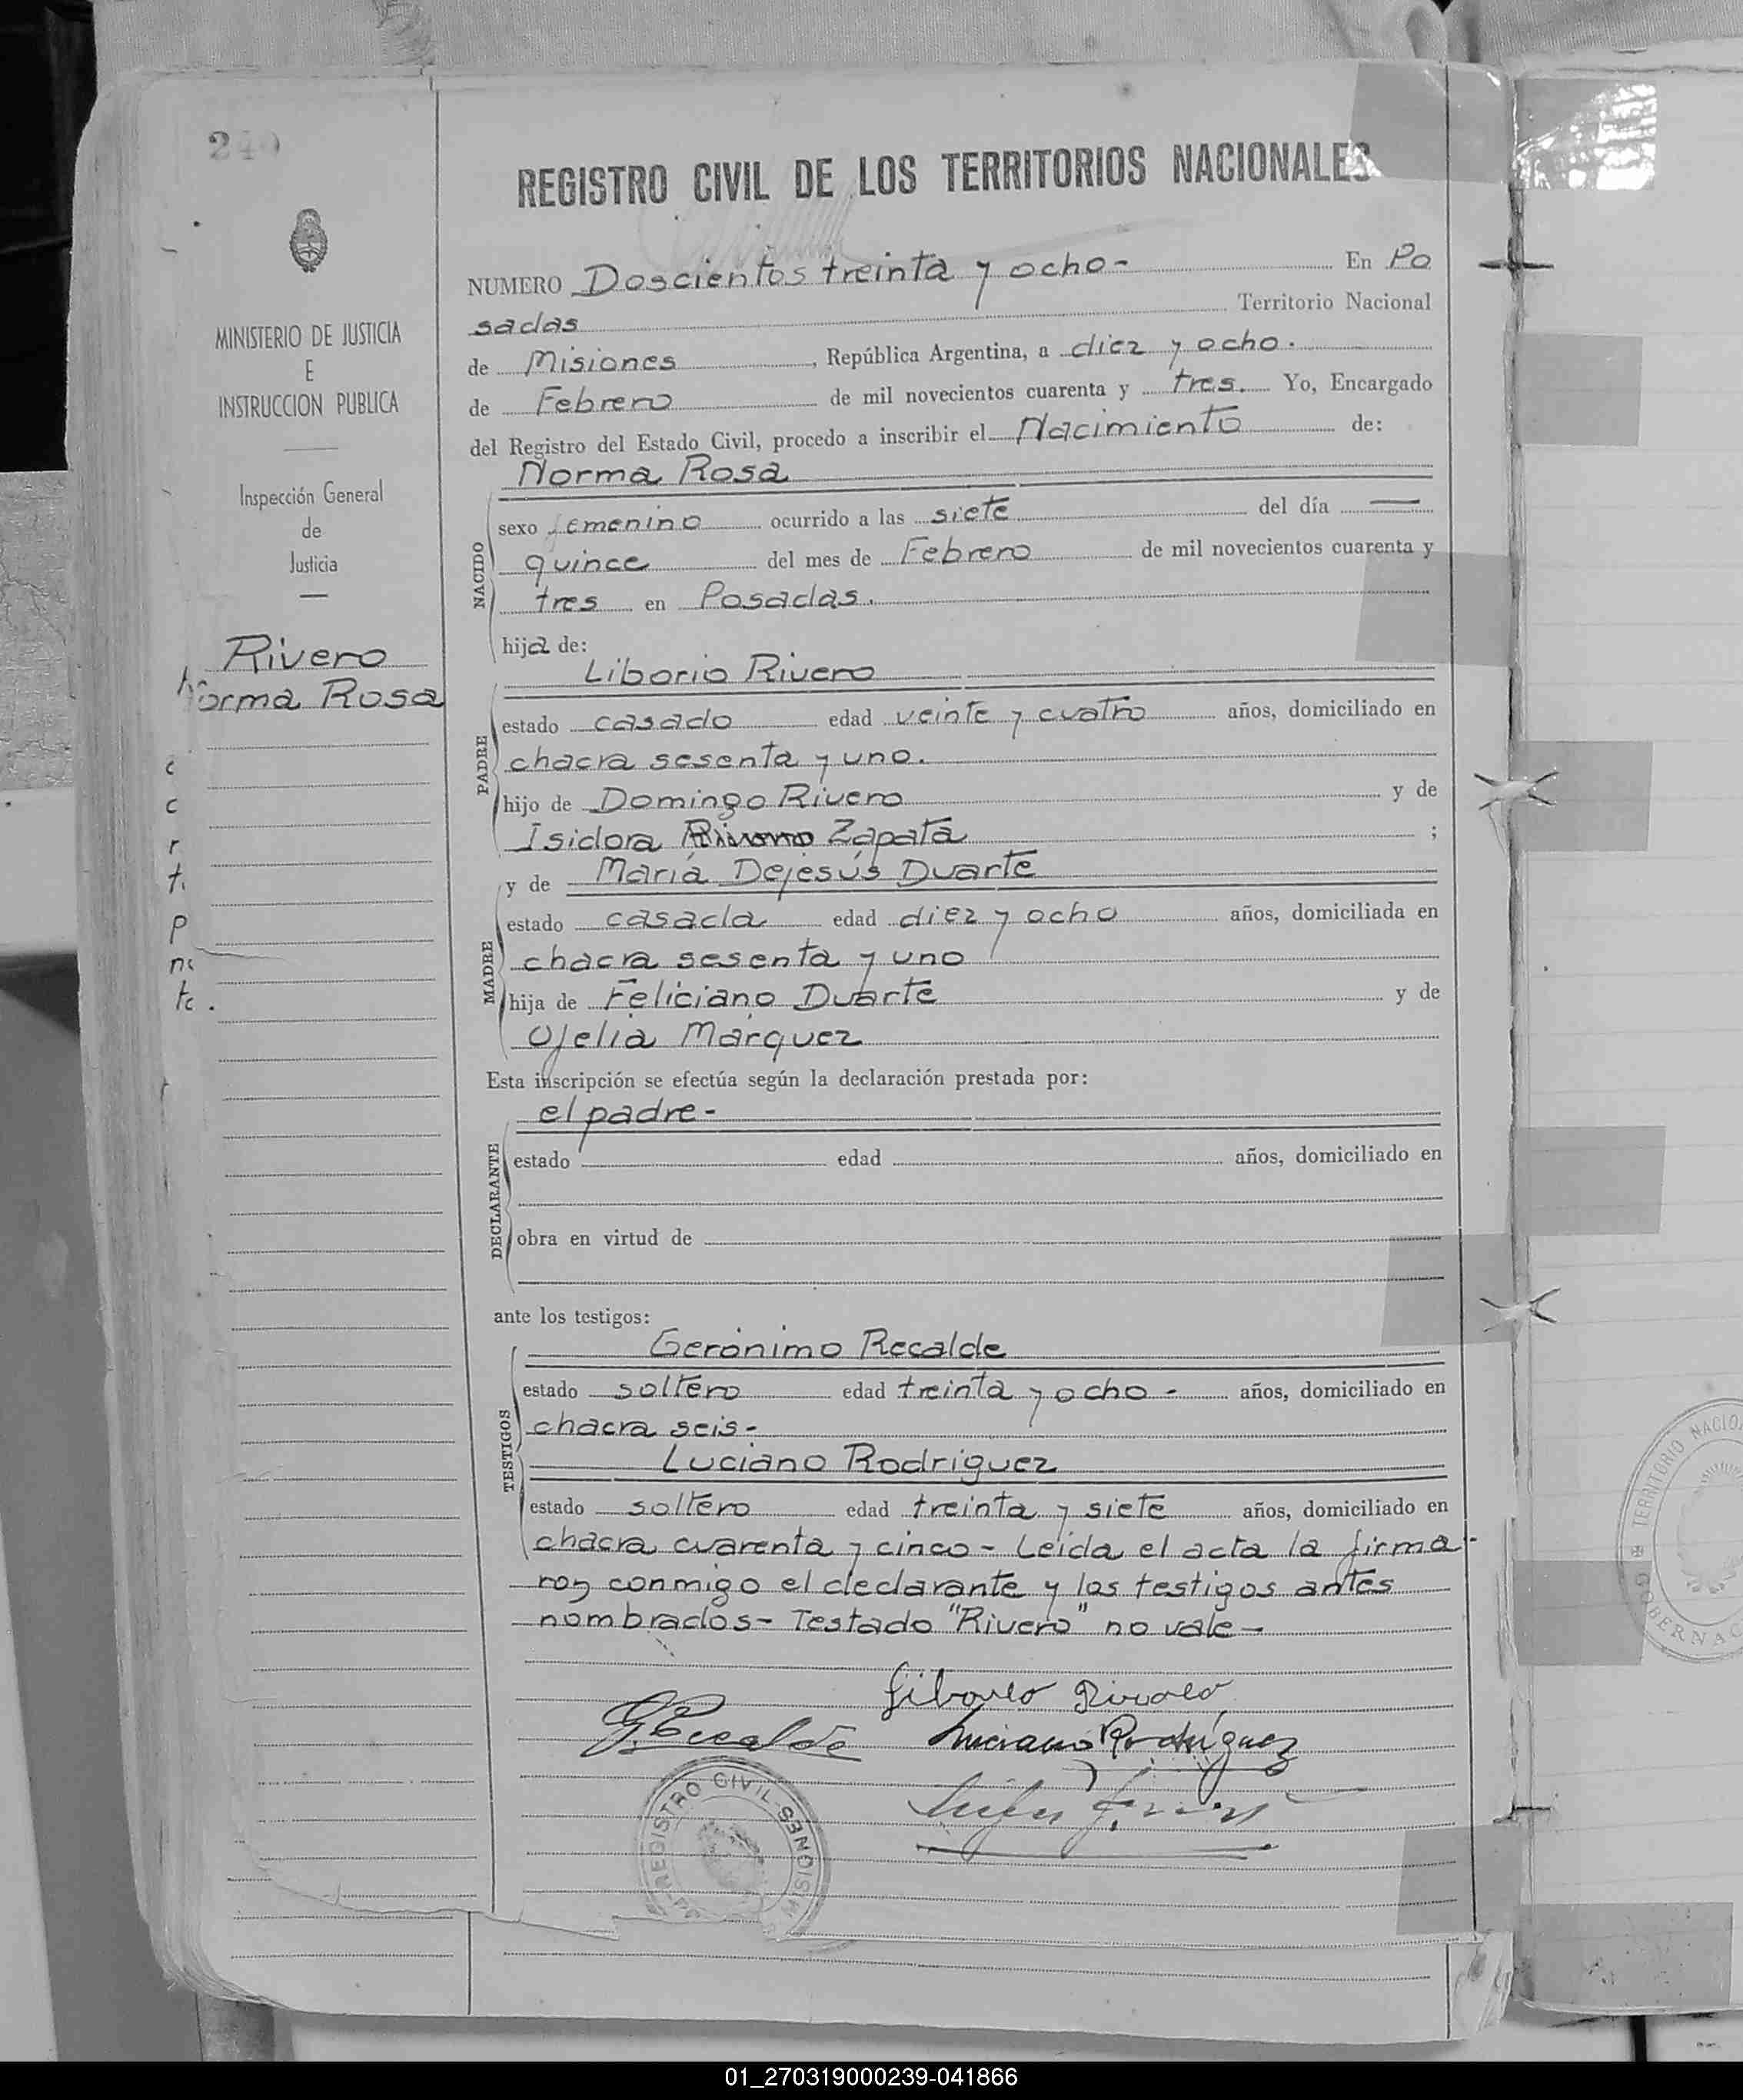 240
MINISTERIO DE JUSTICIA
E
INSTRUCCION PUBLICA
Inspección General
de
Justicia
Rivero
Norma Rosa
c
c
r
t.
p
nc
tc.
REGISTRO CIVIL DE LOS TERRITORIOS NACIONALES
NUMERO Doscientos treinta y ocho- En Po
sadas Territorio Nacional
de Misiones, República Argentina, a diez y ocho.
de Febrero de mil novecientos cuarenta y tres. Yo, Encargado
del Registro del Estado Civil, procedo a inscribir el Nacimiento de:
NACIDO
Norma Rosa
sexo femenino ocurrido a las siete del día —
quince del mes de Febrero de mil novecientos cuarenta y
tres en Posadas.
hija de:
PADRE
Liborio Rivero
estado casado edad veinte y cuatro años, domiciliado en
chacra sesenta y uno.
hijo de Domingo Rivero y de
Isidora Rivero Zapata ;
MADRE
y de María Dejesús Duarte
estado casada edad diez y ocho años, domiciliada en
chacra sesenta y uno
hija de Feliciano Duarte y de
Ofelia Marquez
Esta inscripción se efectúa según la declaración prestada por:
DECLARANTE
el padre-
estado edad años, domiciliado en
obra en virtud de
ante los testigos:
TESTIGOS
Gerónimo Recalde
estado soltero edad treinta y ocho - años, domiciliado en
chacra seis-
Luciano Rodriguez
estado soltero edad treinta y siete años, domiciliado en
chacra cuarenta y cinco- Leida el acta la firma-
ron conmigo el declarante y los testigos antes
nombrados- Testado "Rivero" no vale-
Liborio Rivero
G. Recalde Luciano Rodríguez
REGISTRO CIVIL MISIONES
TERRITORIO NACIO
GOBERNAC
01_270319000239-041866